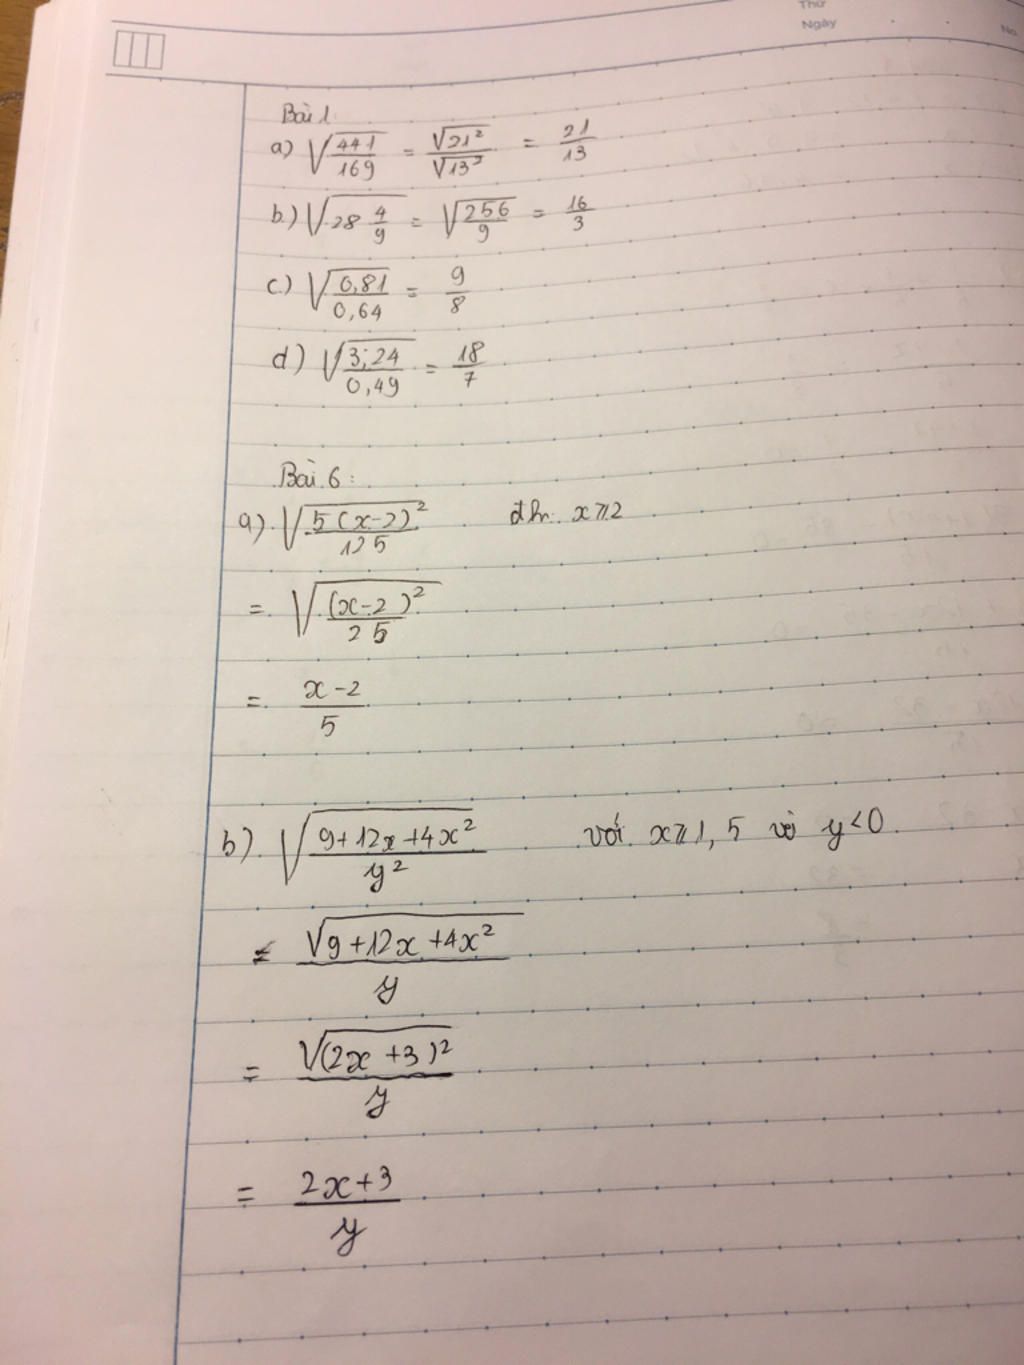 Thứ
Ngày
No
Bài 1
a) √(441/169) = √21²/√13² = 21/13
b.) √(28 4/9) = √(256/9) = 16/3
c.) √(0,81/0,64) = 9/8
d) √(3,24/0,49) = 18/7
Bài 6:
a) √(5(x-2)²/125) đk: x ≥ 2
= √((x-2)²/25)
= (x-2)/5
b) √((9+12x+4x²)/y²) với x ≥ 1,5 và y<0.
= √(9+12x+4x²)/y
= √(2x+3)²/y
= (2x+3)/y